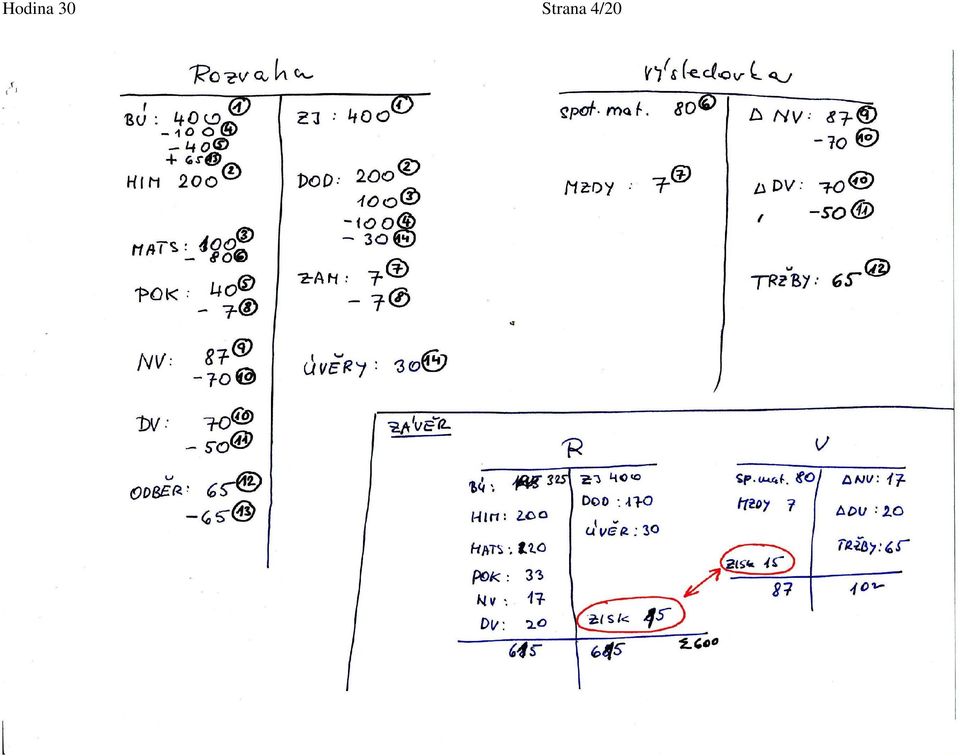 Hodina 30
Strana 4/20
Rozvaha
BÚ: 400 ①
-100 ④
-40 ⑤
+65 ⑬
HIM 200 ②
MATS: 100 ③
-80 ⑥
POK: 40 ⑤
-7 ⑧
NV: 87 ⑨
-70 ⑩
DV: 70 ⑩
-50 ⑪
ODBĚR: 65 ⑫
-65 ⑬
ZJ: 400 ①
DOD: 200 ②
100 ③
-100 ④
-30 ⑭
ZAM: 7 ⑦
-7 ⑧
ÚVĚRY: 30 ⑭
Výsledovka
spot. mat. 80 ⑥
MZDY: 7 ⑦
Δ NV: 87 ⑨
-70 ⑩
Δ DV: 70 ⑩
-50 ⑪
TRŽBY: 65 ⑫
ZÁVĚR
R
BÚ: 325
HIM: 200
MATS: 20
POK: 33
NV: 17
DV: 20
615
ZJ 400
DOD: 170
ÚVĚR: 30
ZISK 15
615
Σ600
V
sp. mat. 80
MZDY 7
ZISK 15
87
ΔNV: 17
ΔDV: 20
TRŽBY: 65
102